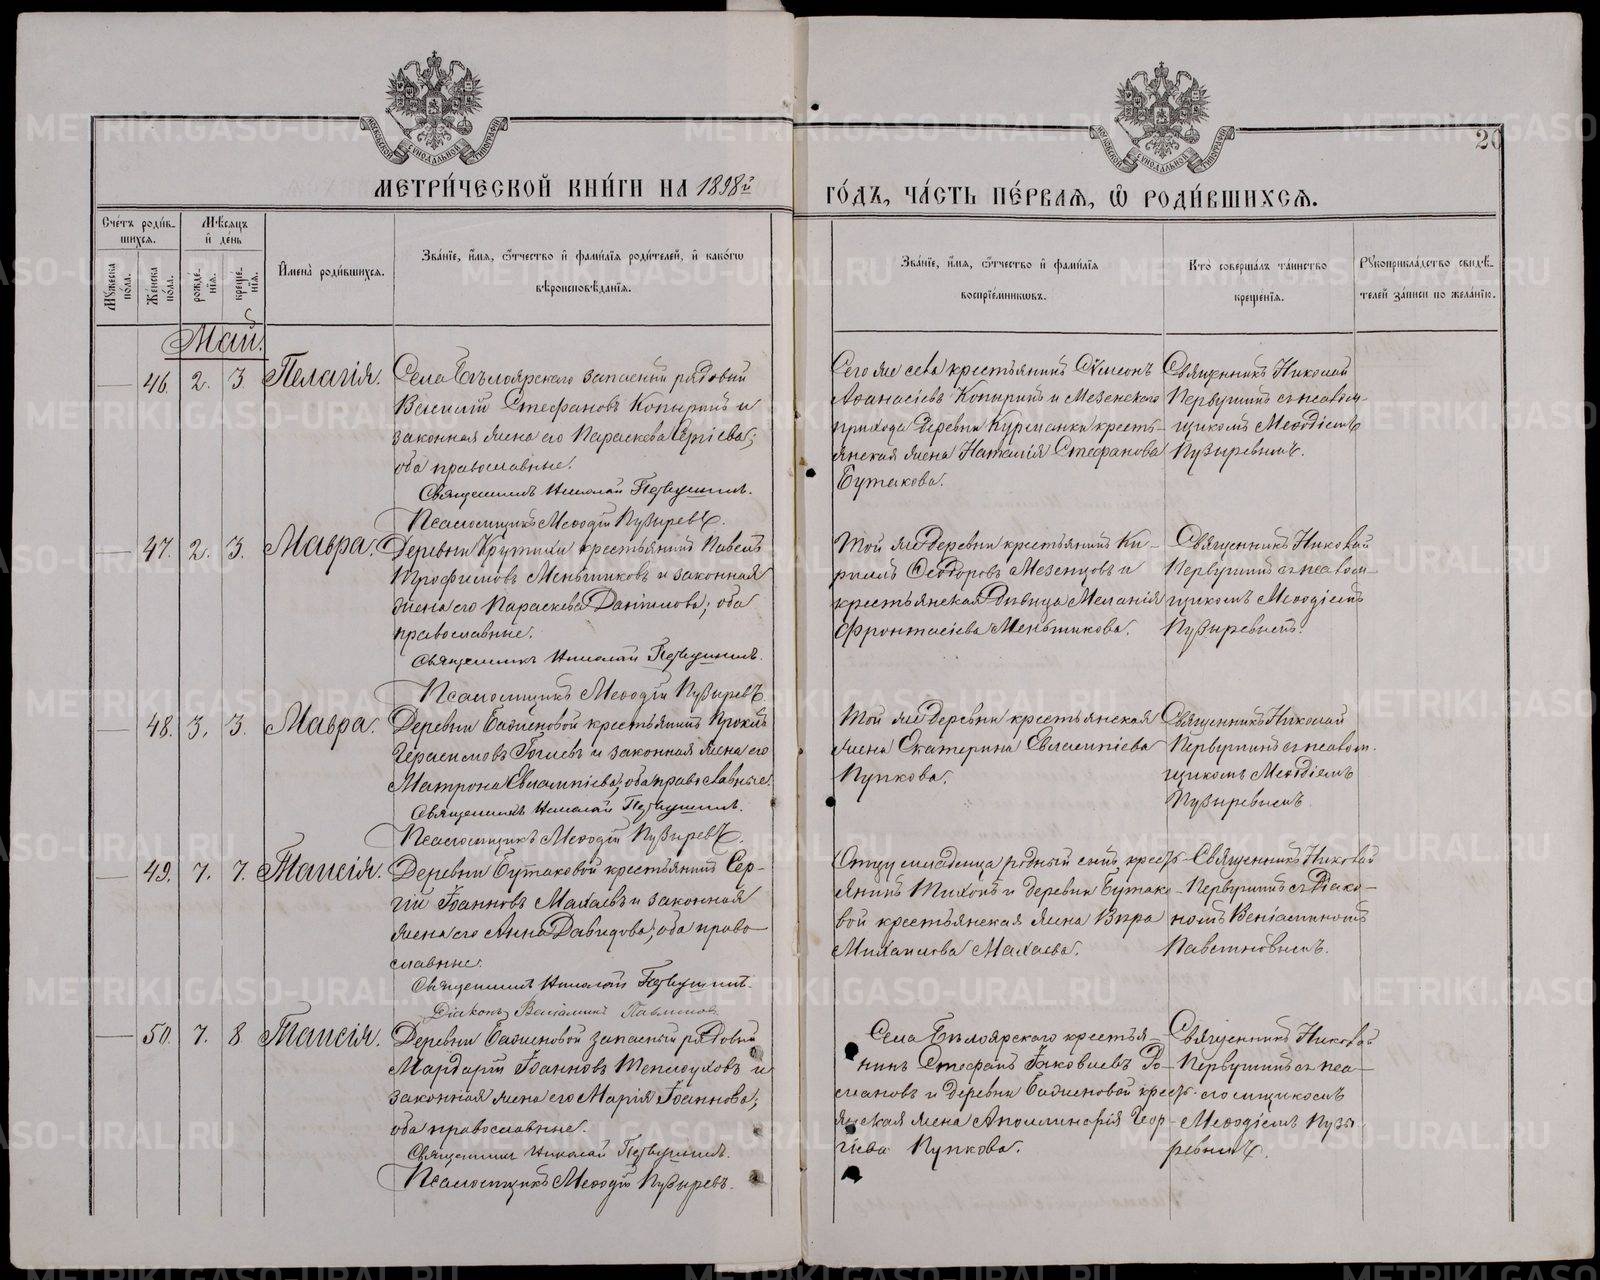 МОСКОВСКОЙ СѴНОДАЛЬНОЙ ТИПОГРАФІИ
МОСКОВСКОЙ СѴНОДАЛЬНОЙ ТИПОГРАФІИ
20
МЕТРИ́ЧЕСКОЙ КНИ́ГИ НА 1898й
ГО́ДЪ, ЧА́СТЬ ПЕ́РВАѦ, Ѡ҆ РОДИ́ВШИХСѦ.
Сче́тъ роди́в-
шихсѧ.
Мꙋ́жеска по́ла.
Же́нска по́ла.
Мѣ́сѧцъ
и҆ де́нь
рожде́-
нїѧ.
креще́-
нїѧ.
И҆мена̀ роди́вшихсѧ.
Зва́нїе, и҆́мѧ, ѻ҆́тчество и҆ фами́лїѧ роди́телей, и҆ како́гѡ
вѣроисповѣ́данїѧ.
Зва́нїе, и҆́мѧ, ѻ҆́тчество и҆ фами́лїѧ
воспрїе́мникѡвъ.
Кто̀ соверша́лъ та́инство
креще́нїѧ.
Рꙋкоприкла́дство свидѣ́-
телей за́писи по жела́нїю.
Май.
— 46. 2. 3. Пелагія.
Села Бѣлоярскаго запасный рядовый
Василій Стефановъ Копыринъ и
законная жена его Параскева Сергіева;
оба православные.
Священникъ Николай Первушинъ.
Псаломщикъ Меѳодій Пузыревъ.
Сего же села крестьянинъ Сѵмеонъ
Аѳанасіевъ Копыринъ и Мезенскаго
прихода деревни Курманки кресть-
янская жена Наталія Стефанова
Бутакова.
Священникъ Николай
Первушинъ съ псалом-
щикомъ Меѳодіемъ
Пузыревымъ.
— 47. 2. 3. Мавра.
Деревни Крутихи крестьянинъ Павелъ
Трофимовъ Меньшиковъ и законная
жена его Параскева Даніилова; оба
православные.
Священникъ Николай Первушинъ.
Псаломщикъ Меѳодій Пузыревъ
Той же деревни крестьянинъ Ки-
риллъ Ѳеодоровъ Мезенцовъ и
крестьянская дѣвица Меланія
Меньшикова.
Священникъ Николай
Первушинъ съ псалом-
щикомъ Меѳодіемъ
Пузыревымъ.
— 48. 3. 3. Мавра.
Деревни Баженовой крестьянинъ
Герасимовъ и законная жена его
Матрона Евлампіева; оба православные.
Священникъ Николай Первушинъ.
Псаломщикъ Меѳодій Пузыревъ.
Той же деревни крестьянская
жена Екатерина Евлампіева
Пупкова.
Священникъ Николай
Первушинъ съ псалом-
щикомъ Меѳодіемъ
Пузыревымъ.
— 49. 7. 7. Таисія.
Деревни Бутаковой крестьянинъ Сер-
гій Іоанновъ Махаевъ и законная
жена его Анна Давидова; оба право-
славные.
Священникъ Николай Первушинъ.
Діаконъ Веніаминъ Павлиновъ
Отцу младенца родный сынъ кресть-
янинъ Тихонъ и деревни Бутако-
вой крестьянская жена Вѣра
Михаилова Махаева.
Священникъ Николай
Первушинъ съ Діако-
номъ Веніаминомъ
Павлиновымъ.
— 50. 7. 8 Таисія.
Деревни Баженовой запасный рядовый
Мардарій Іоанновъ и
законная жена его Марія Іоаннова;
оба православные.
Священникъ Николай Первушинъ.
Псаломщикъ Меѳодій Пузыревъ.
Села Бѣлоярскаго крестья-
нинъ Стефанъ Іаковлевъ Ро-
мановъ и деревни Баженовой кресть-
янская жена Аполлинарія Геор-
гіева Пупкова.
Священникъ Николай
Первушинъ съ пса-
ломщикомъ
Меѳодіемъ Пузы-
ревымъ.
METRIKI.GASO-URAL.RU